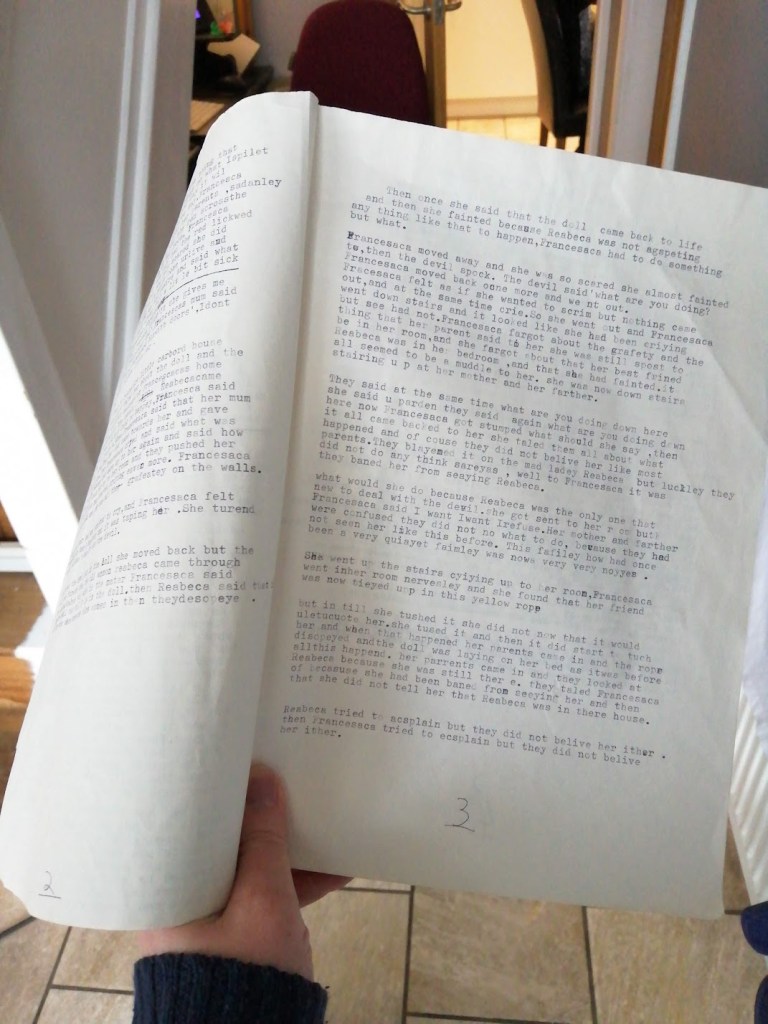 ng that
what Ispilet
it wil
Francesca
,sadanley
acrossthe
Francesca
red lickwed
she did
aplive and
she said what
is bit sick
she gives me
mum said
,Idont
carbord house
the doll and the
home
Reabecacame
Francesca said
said that her mum
towards her and gave
and said what was
again and said how
and they pushed her
more. Francesaca
grafetey on the walls.
cry,and Francesaca felt
taping her .She turend
doll she moved back but the
went reabeca came through
Francesaca said
doll,then Reabeca said that
in then theydesopeye .
2
Then once she said that the doll came back to life
and then she fainted because Reabeca was not agspeting
any thing like that to happen,Francesaca had to do something
but what.
Francesaca moved away and she was so scared she almost fainted
to,then the devil spock. The devil said'what are you doing?
Francesaca moved back onne more and we nt out.
Fracesaca felt as if she wanted to scrim but nothing case
out,and at the same time crie.So she went out and Francesaca
went down stairs and it looked like she had been criying
but see had not.Francesaca furgot about the grafety and the
thing that her parent said to her she was still spost to
be in her room,and she fargot about that her best freined
Reabeca was in her bedroom ,and that she had fainted.it
all seemed to be a muddle to her. she was now down staire
stairing u p at her mother and her farther.
They said at the same time what are you doing down here
she said u parden they said again what are you doing down
here now Francesaca got stumped what should she say ,then
it all came backed to her she taled them all about what
happened and of couse they did not belive her like most
parents.They blayemed it on the mad ladey Reabeca but luckley they
did not do any think sareyas , well to Francesaca it was
they baned her from seaying Reabeca.
what would she do because Reabeca was the only one that
new to deal with the devil.she got sent to her r om but
Francesaca said I want Iwant Irefuse.Her mother and farther
were confused they did not no what to do, because they had
not seen her like this before. This fafiley how had once
been a very quiayet faimley was nowa very very noyyes .
She went up the stairs cyiying up to her room,Francesaca
went inher room nerveeley and she found that her friend
was now tieyed up in this yellow rope
but in till she tushed it she did not now that it would
uletucuote her.she tused it and then it did start to tuch
her and when that happened her parents came in and the rope
disopeyed andthe doll was laying on her bed as itwas before
allthis happend. her parrents came in and they looked at
Reabeca because she was still ther e. they taled Francesaca
of becasume she had been baned from seeying her and then
that she did not tell her that Reabeca was in there house.
Reabeca tried to acsplain but they did not belive her ither .
then Francesaca tried to ecsplain but they did not belive
her ither.
3